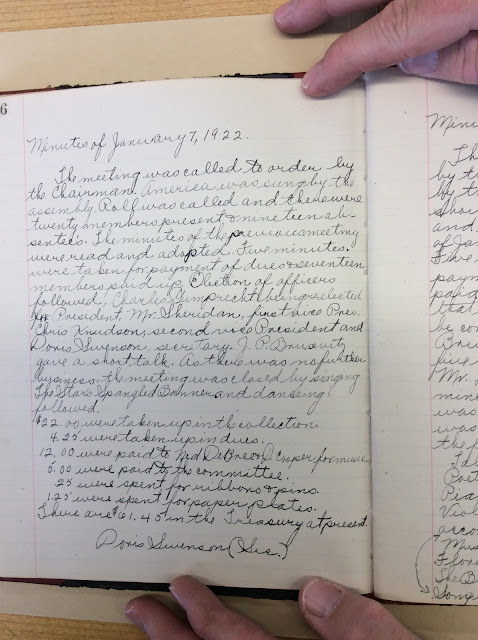 6
Minutes of January 7, 1922.
The meeting was called to order by
the Chairman. America was sung by the
assembly. Roll was called and there were
twenty members present & nineteen ab-
sentees. The minutes of the previous meeting
were read and adopted. Five minutes.
were taken for payment of dues & seventeen
members paid up. Election of officers
followed, Charles Gumprecht being reelected
President, Mr. Sheridan, first vice Pres.
Chris Knudson, second vice President and
Doris Swenson, secretary. J. P.
gave a short talk. As there was no further
business, the meeting was closed by singing
The Stars Spangled Banner and dancing
followed.
$22.00 were taken up in the collection.
4.25 were taken up in dues.
12.00 were paid to Cooper for music.
5.00 were paid to the committee.
.25 were spent for ribbons & pins.
1.25 were spent for paper plates.
There are $61.45 in the Treasury at present.
Doris Swenson (Sec.)
Minu
Th
by t
by t
and
of Ja
Five
paym
paid
that
be co
five
Mr.
mine
was
was
the f
Poet
Pia
Viol
acco
Mus
The B
Song